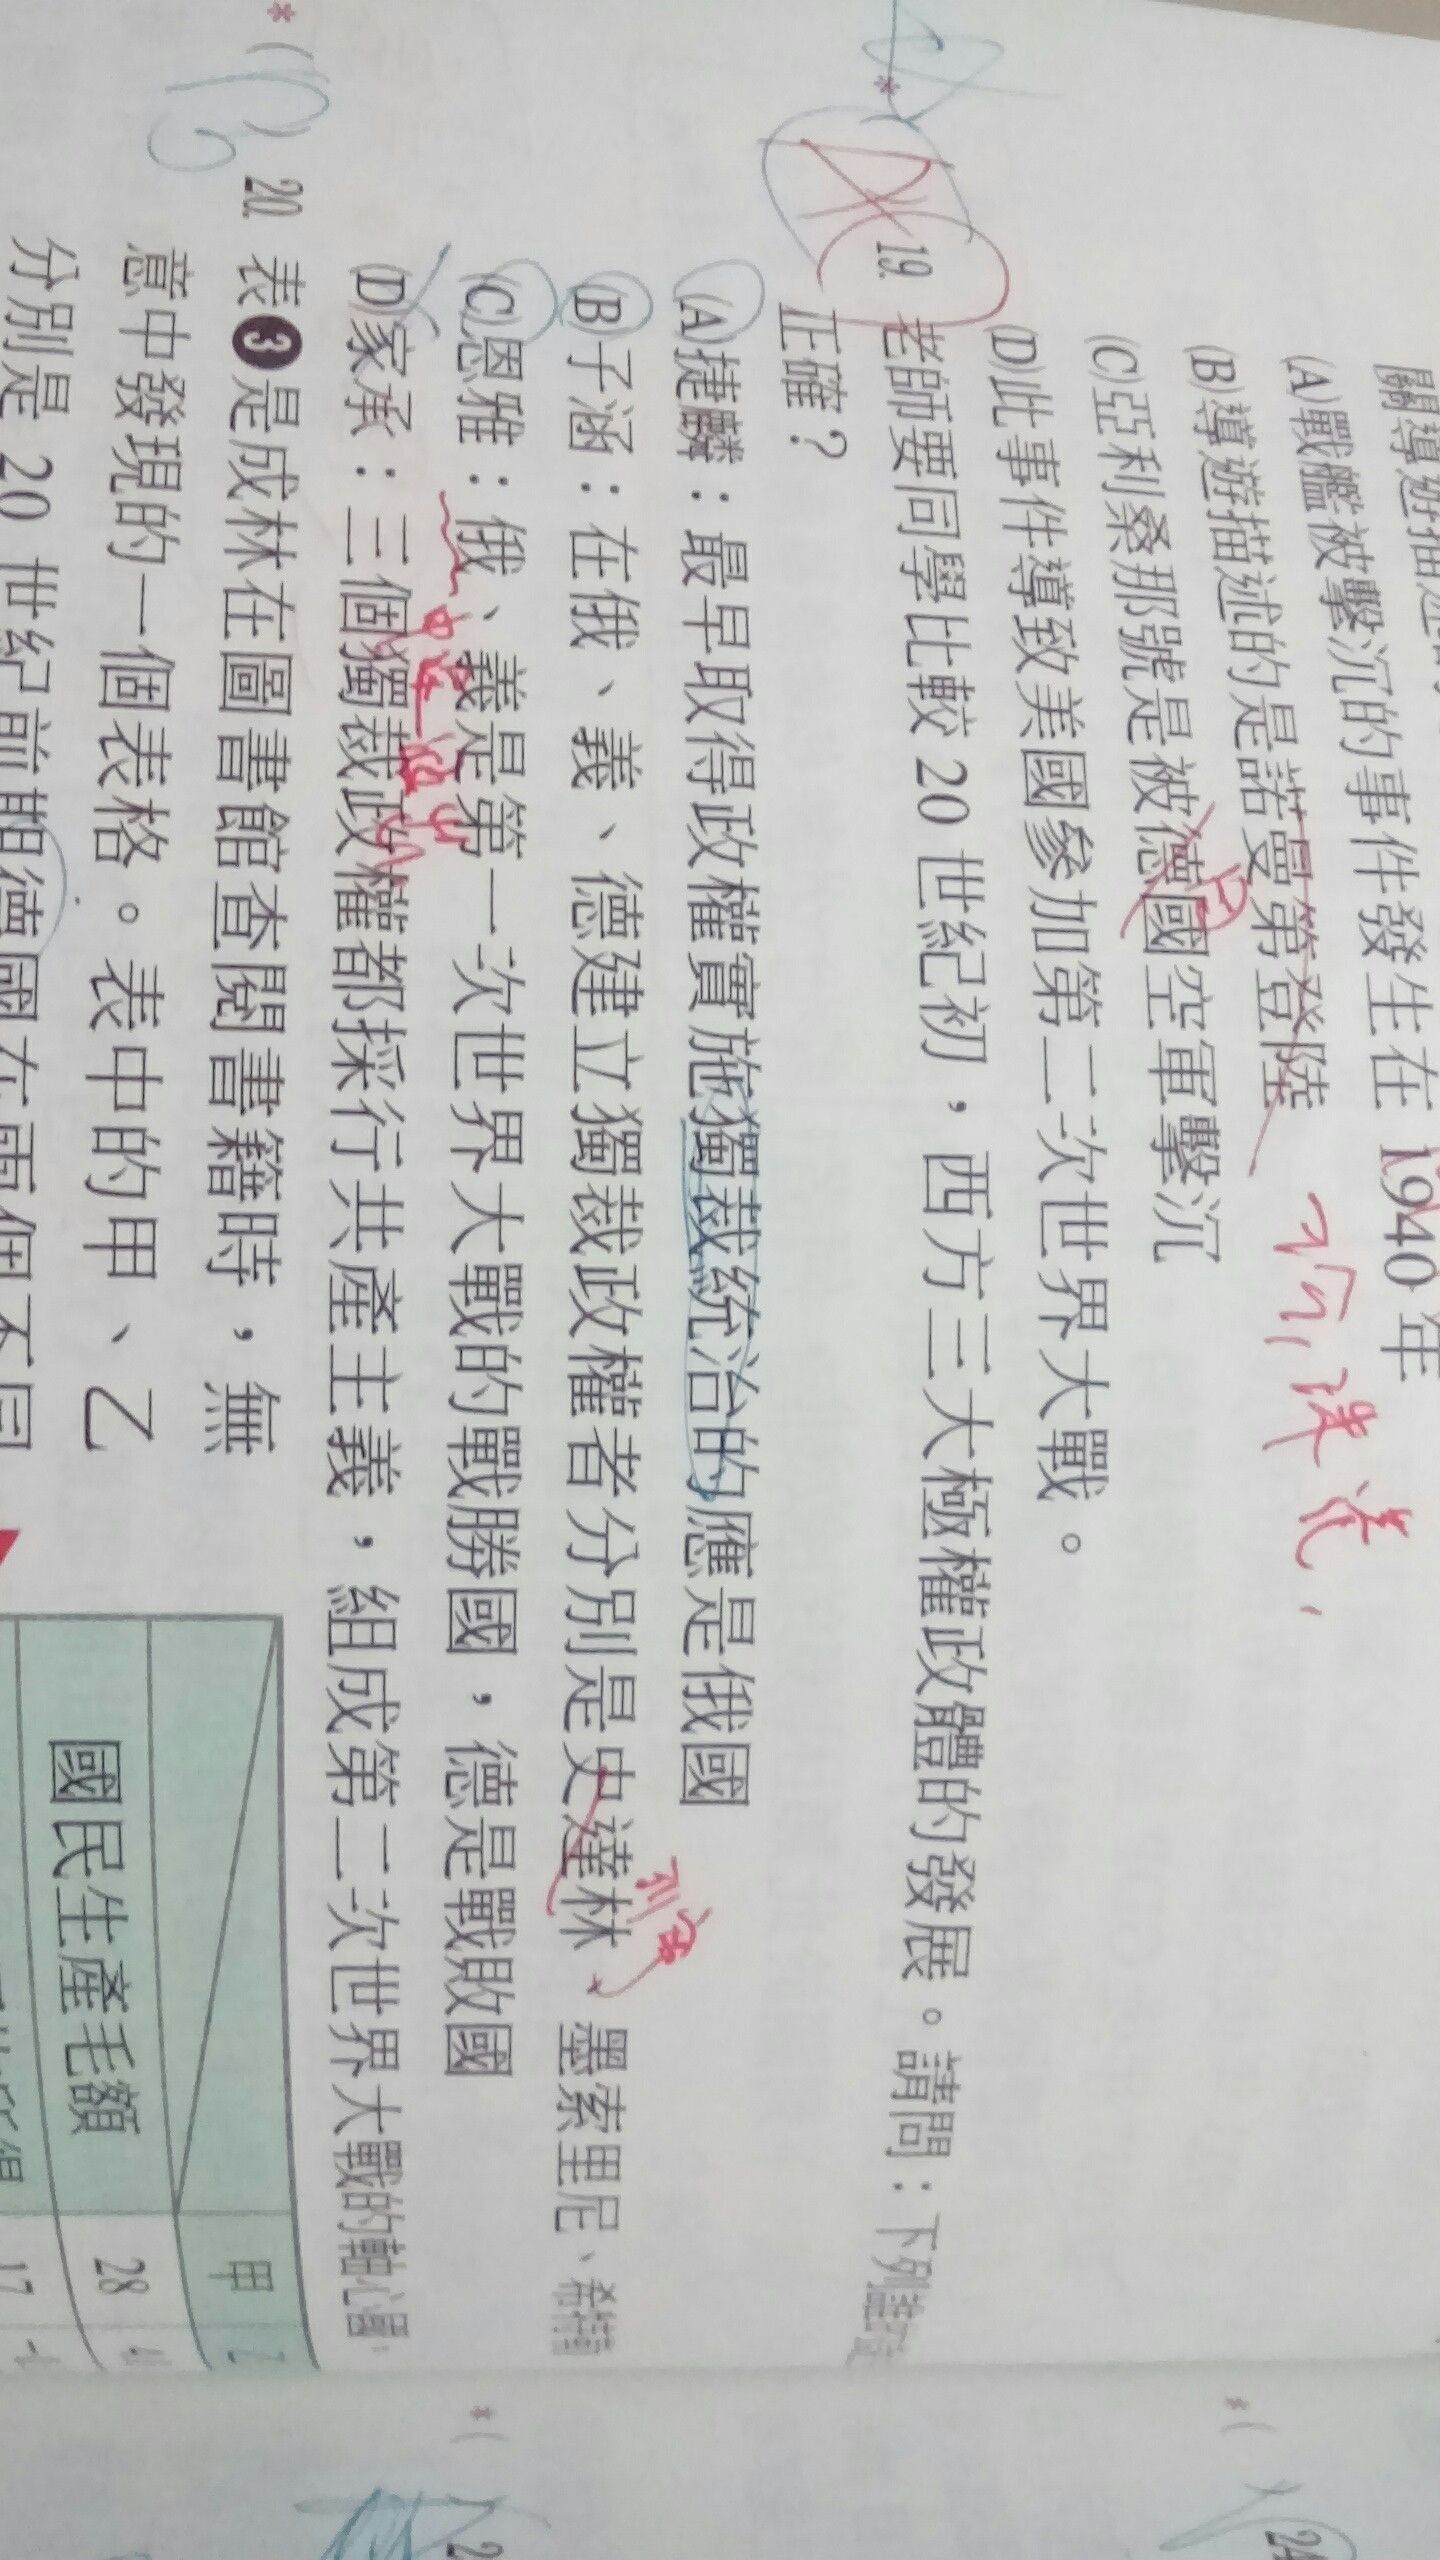 (A)戰艦被擊沉的事件發生在 1940 年
(B)導遊描述的是諾曼第登陸
(C)亞利桑那號是被德國空軍擊沉
日
(D)此事件導致美國參加第二次世界大戰。
* 19. 老師要同學比較 20 世紀初，西方三大極權政體的發展。請問：下列
正確？
(A)捷麟：最早取得政權實施獨裁統治的應是俄國
(B)子涵：在俄、義、德建立獨裁政權者分別是史達林、墨索里尼、希特
列寧
(C)恩雅：俄、義是第一次世界大戰的戰勝國，德是戰敗國
中途退出
(D)家承：三個獨裁政權都採行共產主義，組成第二次世界大戰的軸心
*(B) 20. 表❸是成林在圖書館查閱書籍時，無
意中發現的一個表格。表中的甲、乙
分別是 20 世紀前期德國在兩個不同
甲 乙
國民生產毛額 28
17
*(
*(
24